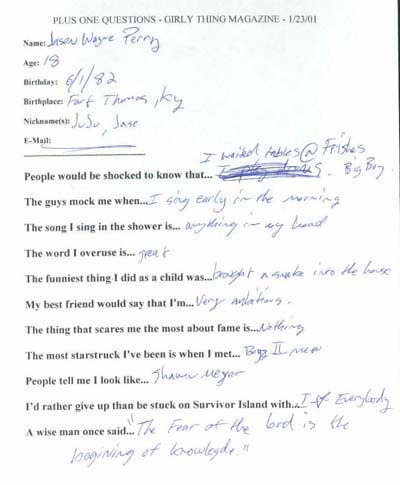 PLUS ONE QUESTIONS - GIRLY THING MAGAZINE - 1/23/01
Name: Jason Wayne Perry
Age: 18
Birthday: 6/1/82
Birthplace: Fort Thomas, Ky
Nickname(s): JuJu, Jase
E-Mail:
I waited tables @ Frishes
People would be shocked to know that... Big Boy.
The guys mock me when... I sing early in the morning
The song I sing in the shower is... anything in my head
The word I overuse is... great
The funniest thing I did as a child was... brought a snake into the house
My best friend would say that I'm... Very ambitious.
The thing that scares me the most about fame is... Nothing
The most starstruck I've been is when I met... Boyz II men
People tell me I look like... Shawn
I'd rather give up than be stuck on Survivor Island with... Everybody
A wise man once said... "The Fear of the lord is the
begining of knowlegde."